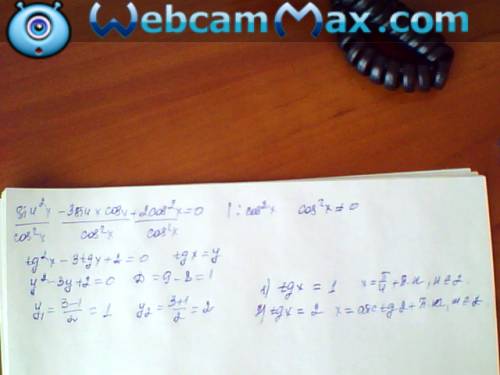 WebcamMax.com
sin²x/cos²x - 3sinx cosx/cos²x + 2cos²x/cos²x = 0 | : cos²x cos²x ≠ 0
tg²x - 3tgx + 2 = 0 tgx = y
y² - 3y + 2 = 0 D = 9 - 8 = 1
y₁ = (3-1)/2 = 1 y₂ = (3+1)/2 = 2
1) tgx = 1 x = π/4 + π·n, n∈Z.
2) tgx = 2 x = arctg2 + π·n, n∈Z.